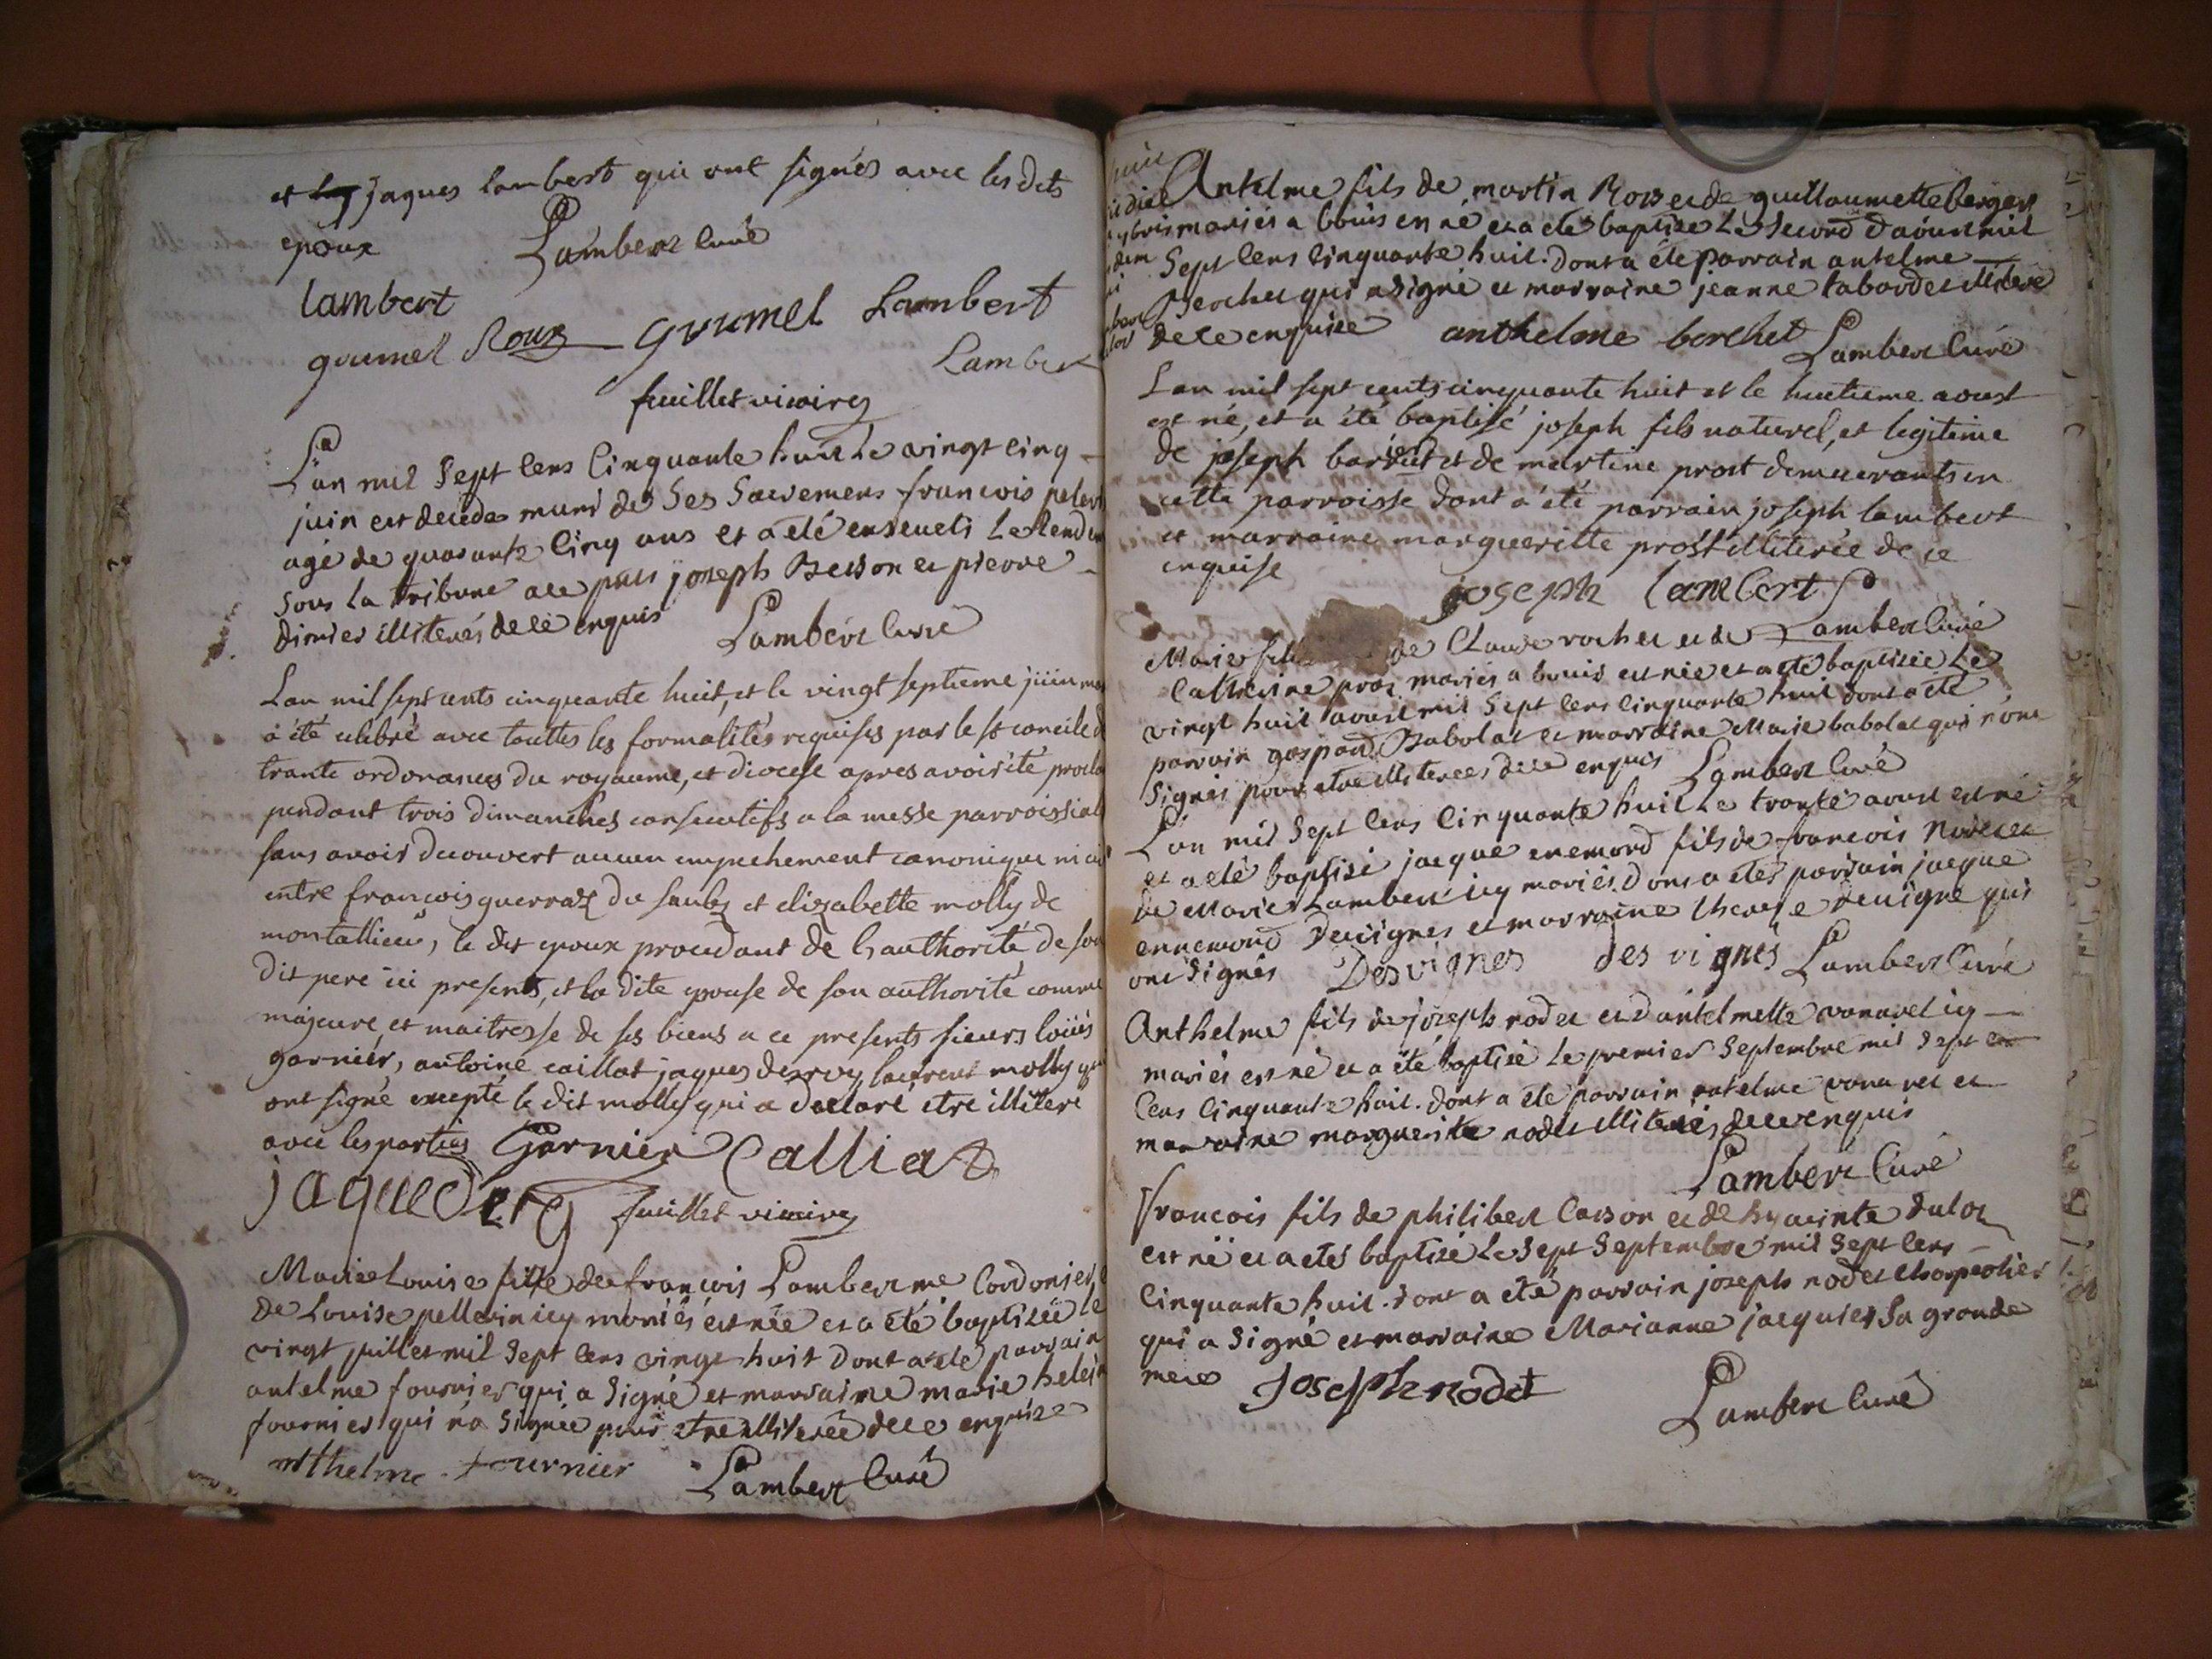 et jaques lambert qui ont signés avec les dits
epoux Lambert Curé
lambert
goumel Roux goumel Lambert
Lambert
feuillet vicaire
L'an mil Sept Cens Cinquante huit Le vingt Cinq
juin est decede muni de Ses Sacremens francois
agé de quarante Cinq ans et a eté enseveli Le
Sous La tribune joseph Besson et pierre
dimier illiterés de ce enquis Lambert Curé
L'an mil sept cents cinquante huit, et le vingt septieme juin
à été celebré avec touttes les formalités requises par le st concile
trante ordonances du royaume, et diocese apres avoir été
pendant trois dimanches consecutifs a la messe
sans avoir decouvert aucun empechement canonique
entre francois guerraz du et elizabette molly de
montallieu, le dit epoux procedant de l'authorité de son
dit pere ici present, et la dite epouse de son authorité comme
majeure, et maitresse de ses biens a ce presents sieurs loüis
garnier, antoine caillat jaques laurent molly
ont signé excepté le dit molly qui a declaré etre illiteré
avec les parties Garnier Calliat
feuillet vicaire
Marie Louise fille de francois Lambert me Cordonier
de Louise pellerin icy mariés est née et a été baptisée le
vingt juillet mil Sept Cens vingt huit dont a eté parrain
antelme fournier qui a Signé et marraine marie
fournier qui n'a Signée pour etre illiterée de ce enquize
anthelme fournier Lambert Curé
Antelme fils de martin et de guillaumette berger
mariés a bouis est né et a eté baptize Le Second d'aoust mil
Sept Cens Cinquante huit. dont a éte parrain antelme
Berchet qui a Signé et marraine jeanne tabardet illiteré
de ce enquize anthelme berchet Lambert Curé
L'an mil sept cents cinquante huit et le huitieme aoust
est né, et a été baptisé joseph fils naturel, et legitime
de joseph et de martine prost demeurants en
cette parroisse dont a été parrain joseph lambert
et marraine margueritte prost illiterée de ce
enquise joseph lambert
Marie de Claude rochet et de Lambert Curé
Catherine mariés a bouis est née et a eté baptizée Le
vingt huit aoust mil Sept Cens Cinquante huit dont a eté
parrain gaspard Babolat et marraine Marie babolat qui n'ont
Signés pour etre illiterées de ce enquis Lambert Curé
L'an mil Sept Cens Cinquante huit Le trante aoust est né
et a eté baptisé jacque enemond fils de francois
de Marie Lambert icy mariés. dont a etés parrain jacque
ennemond Devignes et marraine therese devigne qui
ont Signés Desvignes des vignes Lambert Curé
Anthelme fils de joseph nodet et d'antelmette icy
mariés est né et a été baptisé Le premier Septembre mil Sept
Cens Cinquante huit. dont a été parrain antelme et
marraine marguerite nodet illiterés de ce enquis
Lambert Curé
Francois fils de philibert et de hyacinte
est né et a etés baptizé Le Sept Septembre mil Sept Cens
Cinquante huit. dont a eté parrain joseph nodet
qui a Signé et marraine Marianne jacquier Sa grande
mere Joseph nodet
Lambert Curé